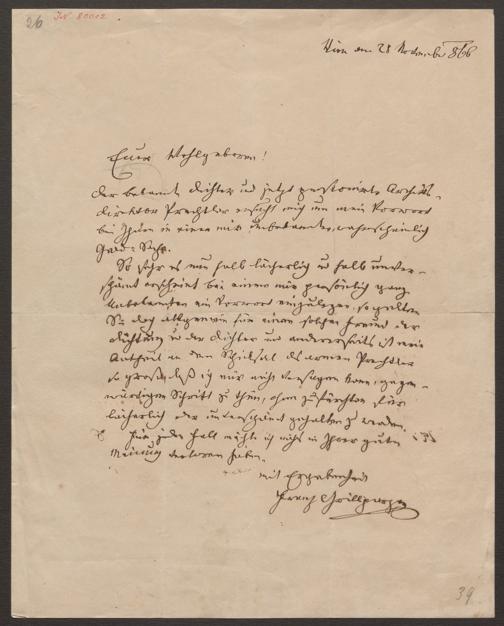 26
JN 80012
Wien den 28 November 866
Euer Wohlgeboren!
Der bekannte Dichter und jetzt pensionirte Archivs-
direktor Prechtler ersucht mich um mein Vorwort
bei Ihnen in einer mir unbekannten, wahrscheinlich
Geld-Sache.
So sehr es nun halb lächerlich und halb unver-
schämt erscheint bei einem mir persönlich ganz
Unbekannten ein Vorwort einzulegen, so gelten
Sie doch allgemein für einen solchen Freund der
Dichtung und der Dichter und andererseits ist mein
Antheil an dem Schicksal des armen Prechtler
so groß, daß ich mir nicht versagen kann, gegen-
wärtigen Schritt zu thun, ohne zu fürchten für
lächerlich oder unverschämt gehalten zu werden.
Für jeden Fall möchte ich nichts in Ihrer guten
Meinung verloren haben.
mit Ergebenheit
Franz Grillparzer
39